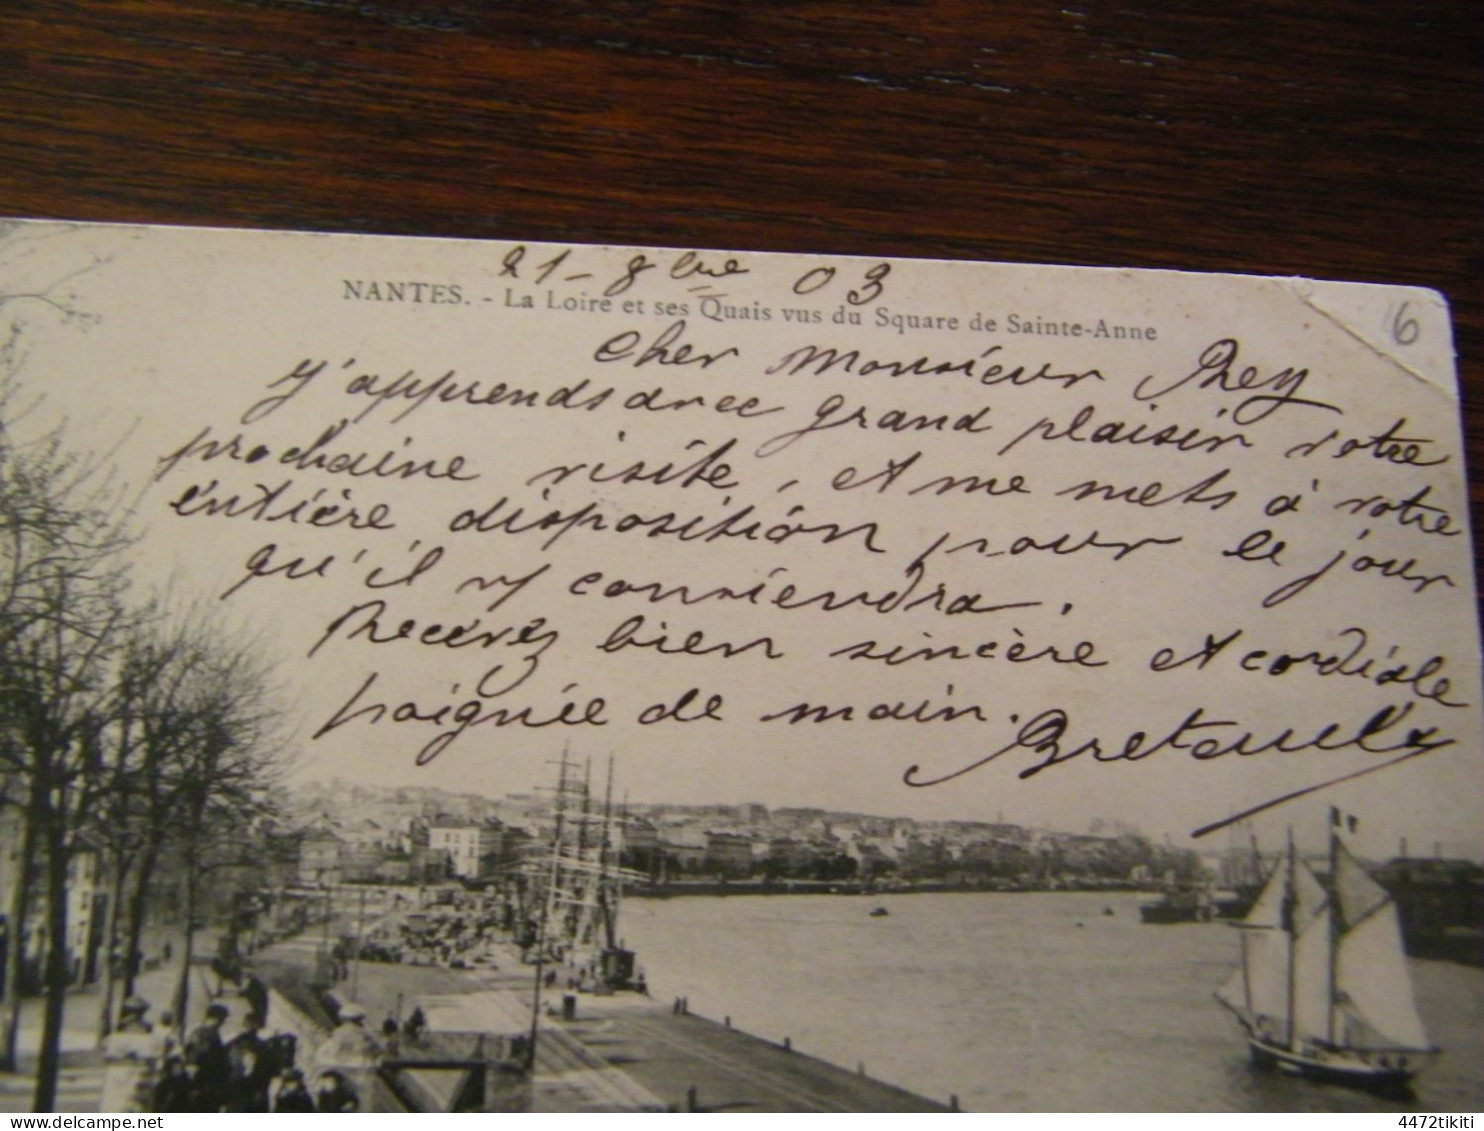 21 - 8bre 03
NANTES. - La Loire et ses Quais vus du Square de Sainte-Anne
6
Cher Monsieur Rhey
J'apprends avec grand plaisir votre
prochaine visite, et me mets à votre
entière disposition pour le jour
qu'il y conviendra.
Recevez bien sincère et cordiale
poignée de main.
4472tikiti